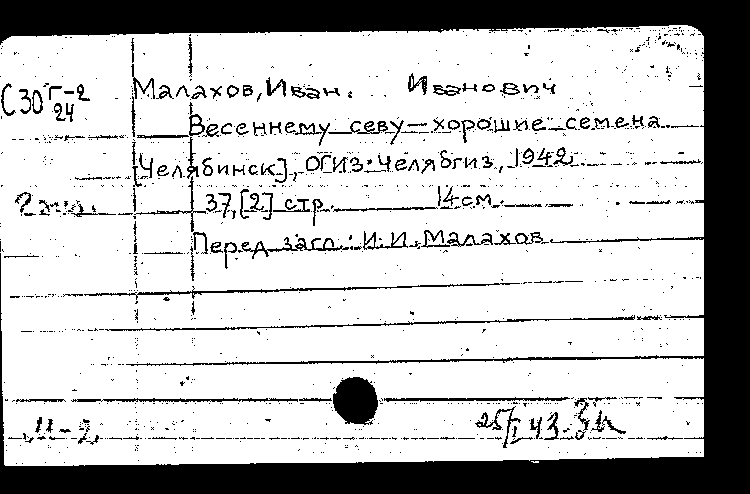 С30 Г-2
24
Малахов, Иван. Иванович
Весеннему севу — хорошие семена
[Челябинск], ОГИЗ·Челябгиз, 1942
2 экз. 37, [2] стр. 14 см.
Перед загл.: И. И. Малахов.
М-2
25/I 43.